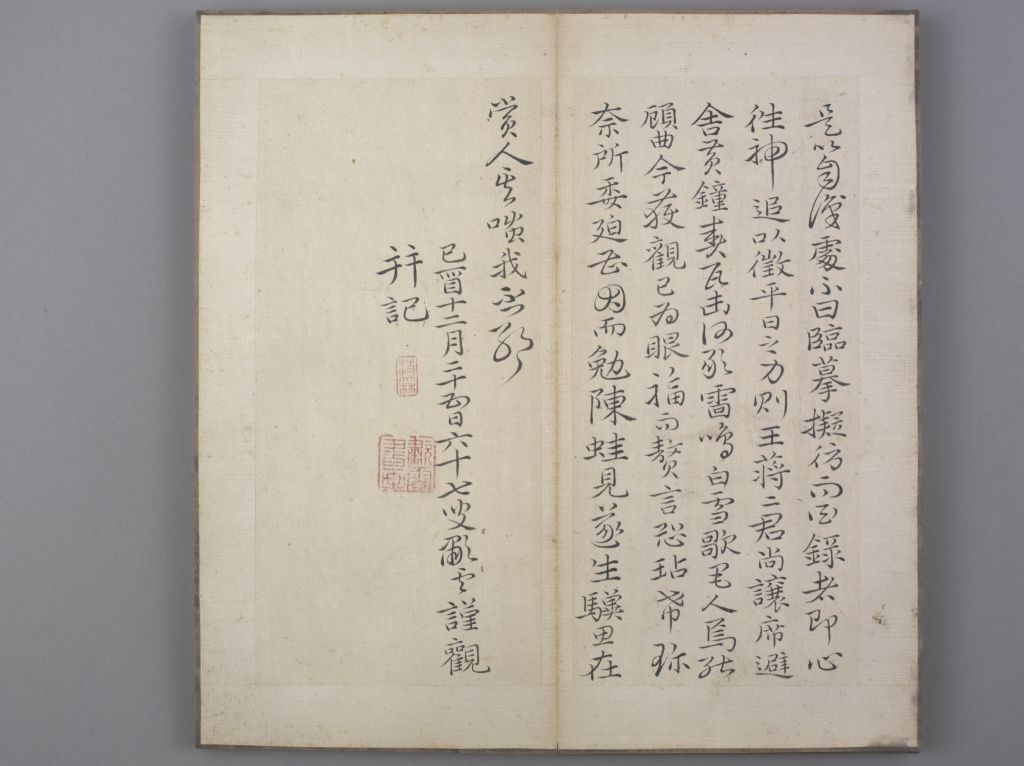 是以自淺處不曰臨摹擬仿而曰錄者即心
往神追以徵平日之力則王蔣二君尚讓席避
舍黃鐘棄瓦缶河能雷鳴白雪歌電人焉能
顧曲今獲觀已為眼福而贅言恐玷希珍
奈所委廹者因而勉陳蛙見遂生驥思在
賞人其嗤我否耶
己酉十二月二十五日六十七叟 謹觀
并記